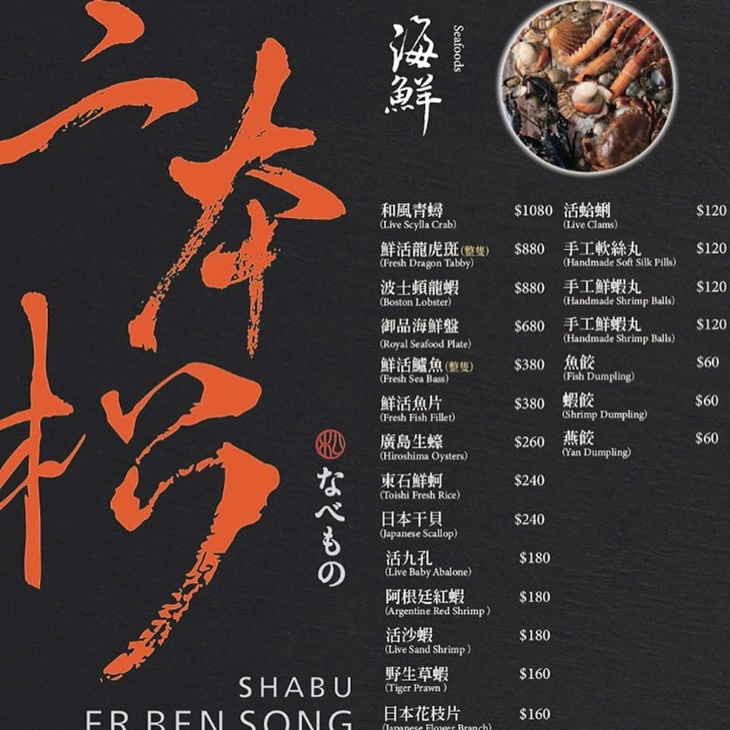 二本松
なべもの
SHABU
ER BEN SONG
海鮮
Seafoods
和風青蟳 $1080
(Live Scylla Crab)
鮮活龍虎斑(整隻) $880
(Fresh Dragon Tabby)
波士頓龍蝦 $880
(Boston Lobster)
御品海鮮盤 $680
(Royal Seafood Plate)
鮮活鱸魚(整隻) $380
(Fresh Sea Bass)
鮮活魚片 $380
(Fresh Fish Fillet)
廣島生蠔 $260
(Hiroshima Oysters)
東石鮮蚵 $240
(Toishi Fresh Rice)
日本干貝 $240
(Japanese Scallop)
活九孔 $180
(Live Baby Abalone)
阿根廷紅蝦 $180
(Argentine Red Shrimp )
活沙蝦 $180
(Live Sand Shrimp )
野生草蝦 $160
(Tiger Prawn )
日本花枝片 $160
(Japanese Flower Branch)
活蛤蜊 $120
(Live Clams)
手工軟絲丸 $120
(Handmade Soft Silk Pills)
手工鮮蝦丸 $120
(Handmade Shrimp Balls)
手工鮮蝦丸 $120
(Handmade Shrimp Balls)
魚餃 $60
(Fish Dumpling)
蝦餃 $60
(Shrimp Dumpling)
燕餃 $60
(Yan Dumpling)